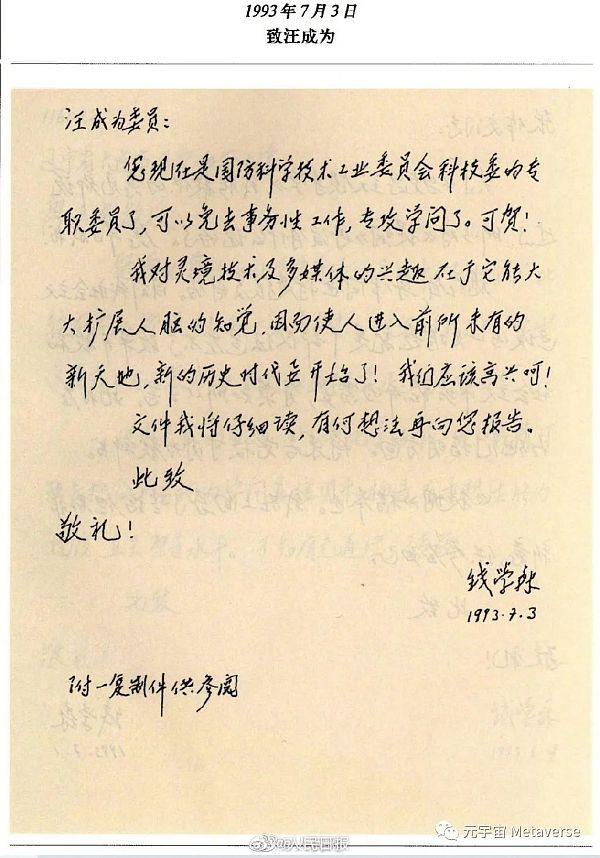 1993年7月3日
致汪成为
汪成为委员：
您现在是国防科学技术工业委员会科技委的专
职委员了，可以免去事务性工作，专攻学问了。可贺！
我对灵境技术及多媒体的兴趣在于它能大
大扩展人脑的知觉，因而使人进入前所未有的
新天地，新的历史时代要开始了！我们应该高兴呵！
文件我将仔细读，有何想法再向您报告。
此致
敬礼！
钱学森
1993.7.3
附一复制件供参阅
@人民日报
元宇宙 Metaverse